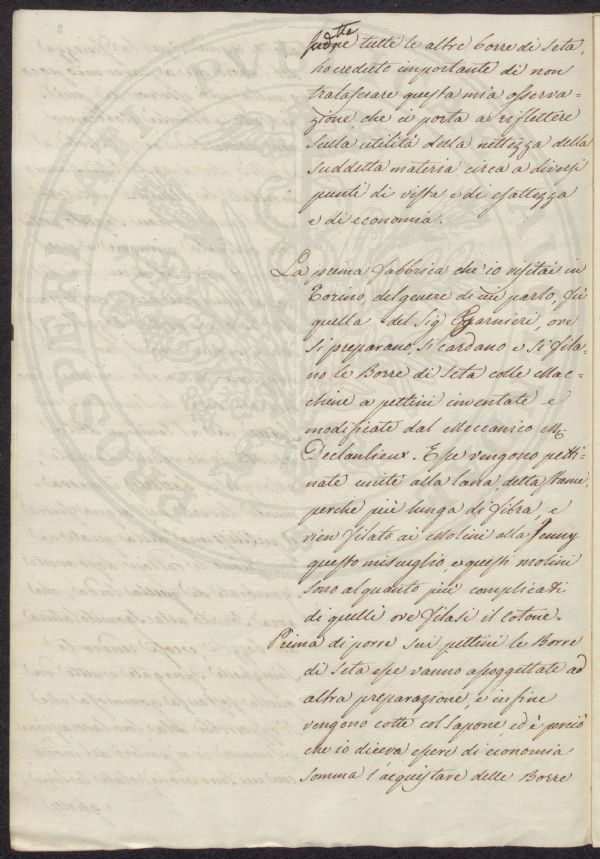 tutte le altre borre di seta,
ho creduto importante di non
tralasciare questa mia osserva-
zione, che ci porta a riflettere
sulla utilità della nettezza della
suddetta materia circa a diversi
punti di vista e di esattezza
e di economia.
La prima fabbrica ch'io visitai in
Torino, del genere di cui parlo, fù
quella del Sig Garnieri, ove
si preparano, si cardano e si fila-
no le Borre di Seta colle Mac-
chine a pettini inventate e
modificate dal Meccanico Mr
Declanlieux. Esse vengono petti-
nate unite alla lana, detta stame,
perchè più lunga di fibra, e
vien filato ai Molini alla Jenny
questo miscuglio, e questi molini
sono alquanto più complicati
di quelli ove filasi il cotone.
Prima di porre sui pettini le Borre
di Seta esse vanno assoggettate ad
altra preparazione, e infine
vengono cotte col sapone, ed è perciò
che io diceva essere di economia
somma l'acquistare delle Borre